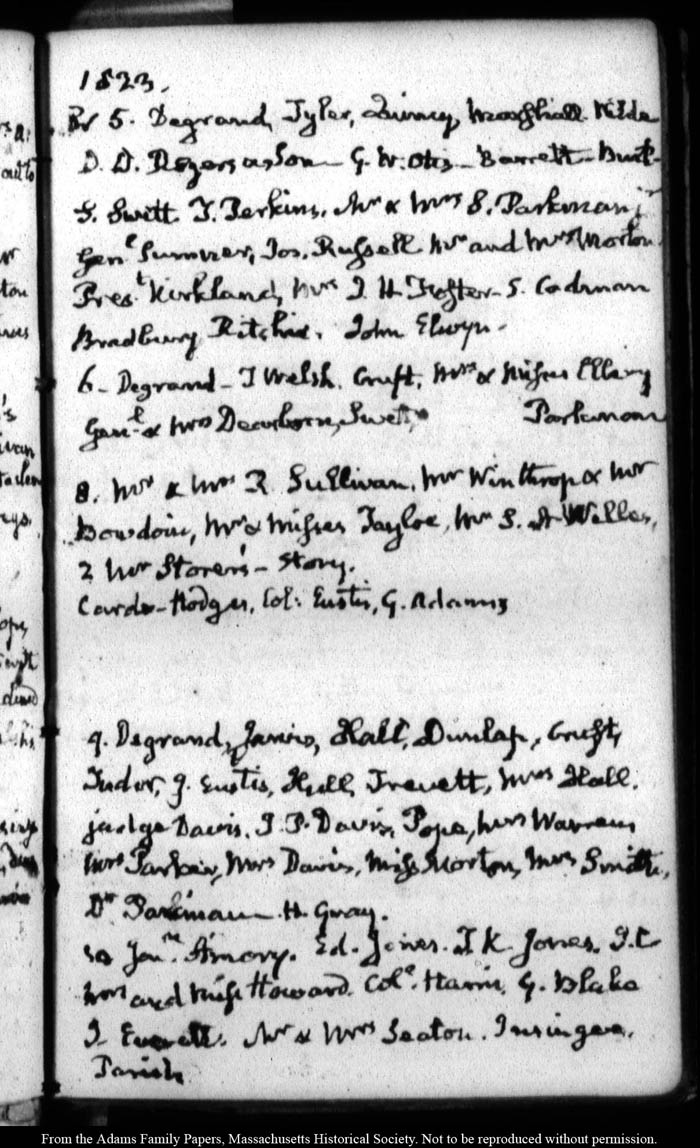 1823.
5. Degrand, Tyler, Quincy, Marshall
D. D. Rogers & Son - G. W. Otis - Barrett -
S. Swett. T. Perkins. Mr & Mrs S. Parkman jr
Genl Sumner, Jos. Russell Mr and Mrs Morton.
Prest Kirkland, Mrs J. H. Foster - S. Codman
Bradbury Ritchie. John Elwyn.
6 - Degrand - T Welsh. Cruft, Mrs & Misses Ellery
Genl & Mrs Dearborn, Swett, Parkman
8. Mr & Mrs R. Sullivan. Mr Winthrop & Mr
Bowdoin, Mrs & Misses Tayloe, Mr S. A Welles,
2 Mr Storers - Story.
Cards - Hodges, Col: Eustis, G. Adams
9. Degrand, Hall, Dunlap, Cruft,
Tudor, G. Eustis, Hull, Trevett, Mrs Hall.
judge Davis. J. P. Davis, Pope, Mrs Warren
Mrs Parker, Mrs Davis, Miss Morton, Mrs Smith,
Dr Parkman. H. Gray.
10 Jonn Amory. Ed. Jones. T K Jones.
Mrs and Miss Howard. Col. Harris. G. Blake
J. Everett. Mr & Mrs Seaton.
Parish
From the Adams Family Papers, Massachusetts Historical Society. Not to be reproduced without permission.